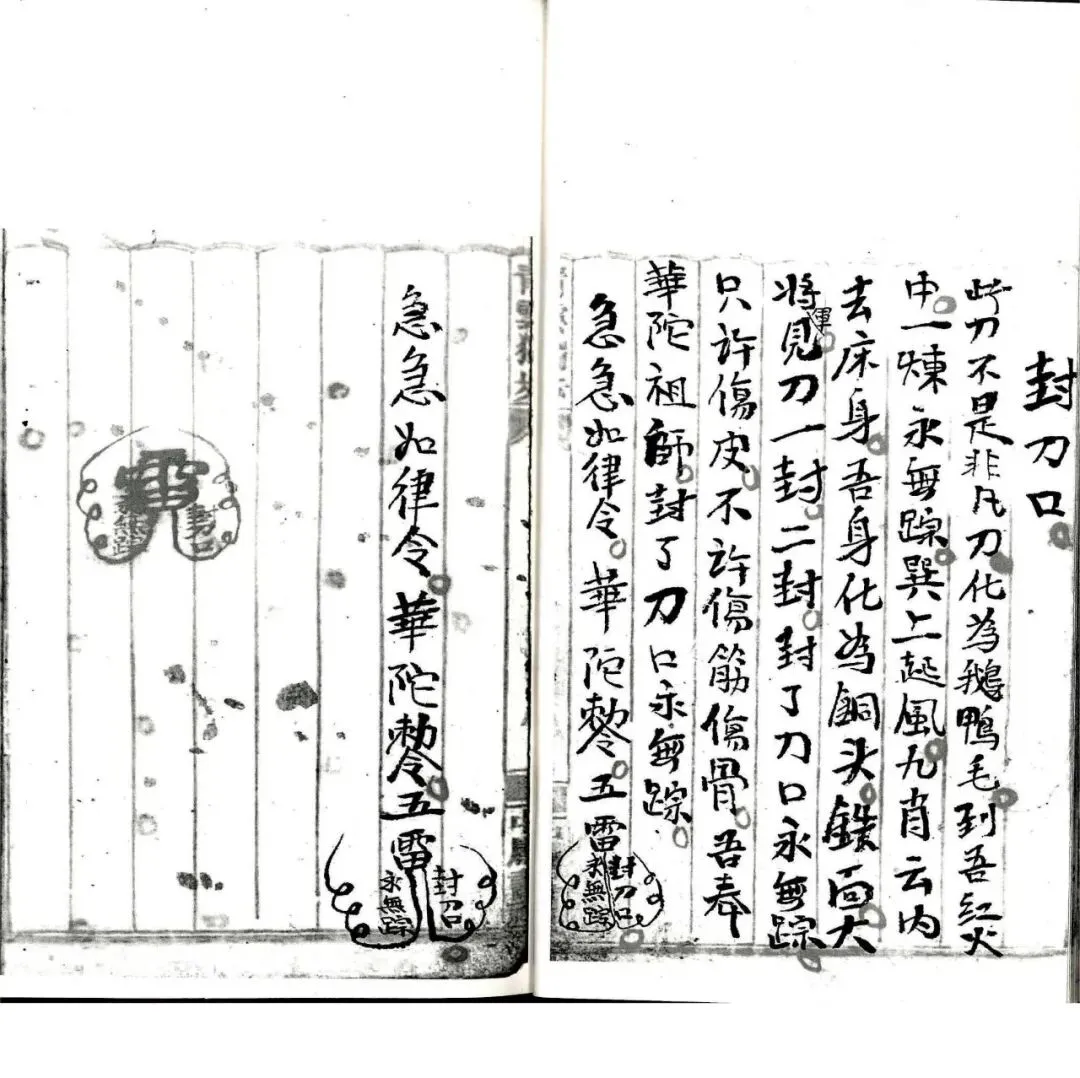 封刀口
此刀不是非凡刀化為鵝鴨毛到吾紅火
中一煉永無踪巽上起風九肖云内
去床身吾身化為銅头鉄面大
將運見刀一封二封封了刀口永無踪
只許傷皮不許傷筋傷骨吾奉
華陀祖師封了刀口永無踪
急急如律令華陀勅令五雷
封刀口
永無踪
急急如律令華陀勅令五雷
封刀口
永無踪
雷
封刀口
永無踪